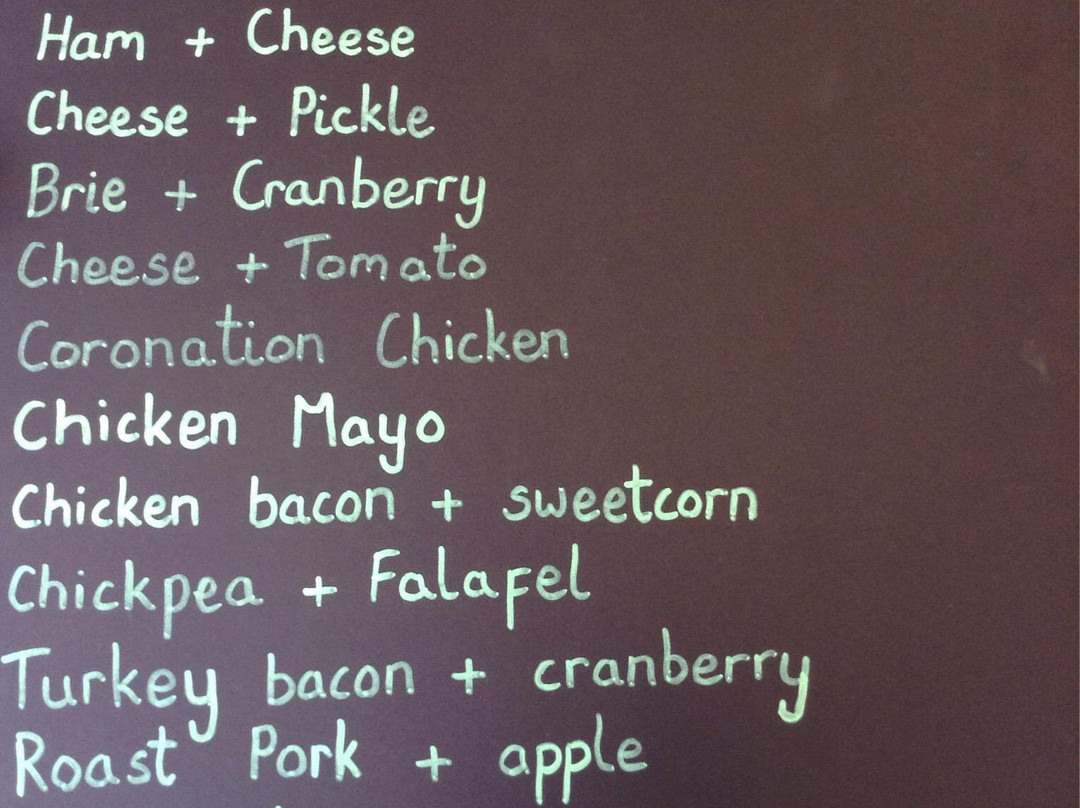 Ham + Cheese
Cheese + Pickle
Brie + Cranberry
Cheese + Tomato
Coronation Chicken
Chicken Mayo
Chicken bacon + sweetcorn
Chickpea + Falafel
Turkey bacon + cranberry
Roast Pork + apple